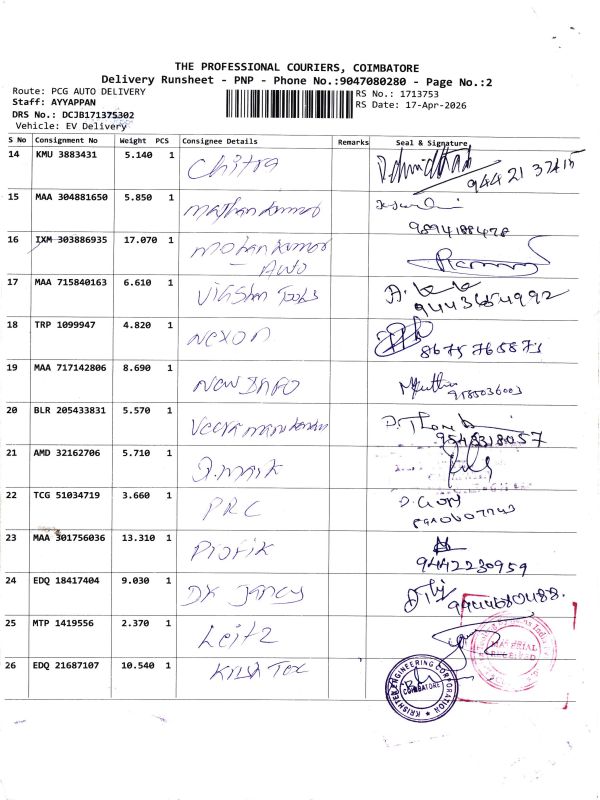 THE PROFESSIONAL COURIERS, COIMBATORE
Delivery Runsheet - PNP - Phone No.:9047080280 - Page No.:2
Route: PCG AUTO DELIVERY
RS No.: 1713753
Staff: AYYAPPAN
RS Date: 17-Apr-2026
DRS No.: DCJB171375302
Vehicle: EV Delivery
S No Consignment No Weight PCS Consignee Details Remarks Seal & Signature
14 KMU 3883431 5.140 1 Chitra
15 MAA 304881650 5.850 1 Mathan Kumar
9894188478
16 IXM 303886935 17.070 1 Mohan Kumar
- Auto
17 MAA 715840163 6.610 1 Tools
18 TRP 1099947 4.820 1 Nexon
8675765873
19 MAA 717142806 8.690 1 New INFO
9785036003
20 BLR 205433831 5.570 1 Veera
21 AMD 32162706 5.710 1 Q.mark
22 TCG 51034719 3.660 1 PRC
D. Gopi
23 MAA 301756036 13.310 1
9442230959
24 EDQ 18417404 9.030 1 DK Jancy
25 MTP 1419556 2.370 1 Leitz
MATERIAL
RECEIVED
26 EDQ 21687107 10.540 1 Tex
ENGINEERING CORPORATION
COIMBATORE